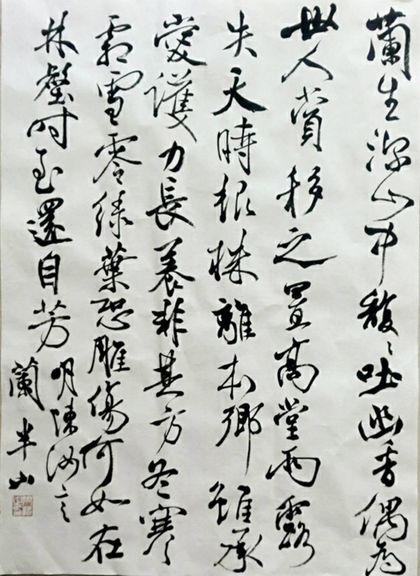 蘭生深山中馥々吐幽香偶為
世人賞移之置高堂雨露
失天時根株離本鄉雖承
愛護力長養非其方冬寒
霜雪零綠葉恐雕傷何如在
林壑時至還自芳
明陳汝言
蘭 半山